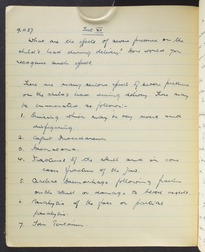 9.11.37 Test VI
What are the effects of severe pressure on the
child's head during delivery? How would you
recognise each effect
There are many serious effects of severe pressure
on the child's head during delivery. They may
be enumerated as follows:-
1. Bruising which may be very severe and
disfiguring.
2. Caput Succedaneum.
3. Meningocele.
4. Fractures of the skull and in some
cases fracture of the jaw.
5. Cerebral Haemorrhage following
on the skull or damage to blood vessels.
6. Paralysis of the face or partial
paralysis.
7.